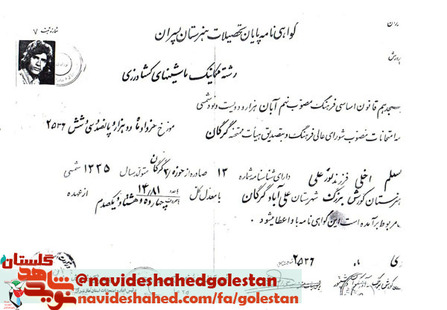 گواهی نامه پایان تحصیلات هنرستان پسران
شماره ثبت ۷
رشته مکانیک ماشینهای کشاورزی
قانون اساسی فرهنگ مصوب نهم آبان هزار و دویست و نود شمسی
امتحانات مصوب شورای عالی فرهنگ و تصدیق هیأت ممتحنه گرگان مورخ خرداد ماه دو هزار و پانصد و سی و شش ۲۵۳۶
اخلی فرزند نور علی دارای شناسنامه شماره ۱۳ صادره از حوزه ۲ گرگان متولد سال ۱۳۳۵ شمسی
هنرستان کورش بزرگ شهرستان علی آباد گرگان با معدل کل ۱۴/۸۱ چهارده و هشتاد و یکصدم از عهده
مربوط برآمده است این گواهی نامه باو اعطا میشود
۲۵۳۶
نوید شاهد گلستان
@navideshahedgolestan
navideshahed.com/fa/golestan